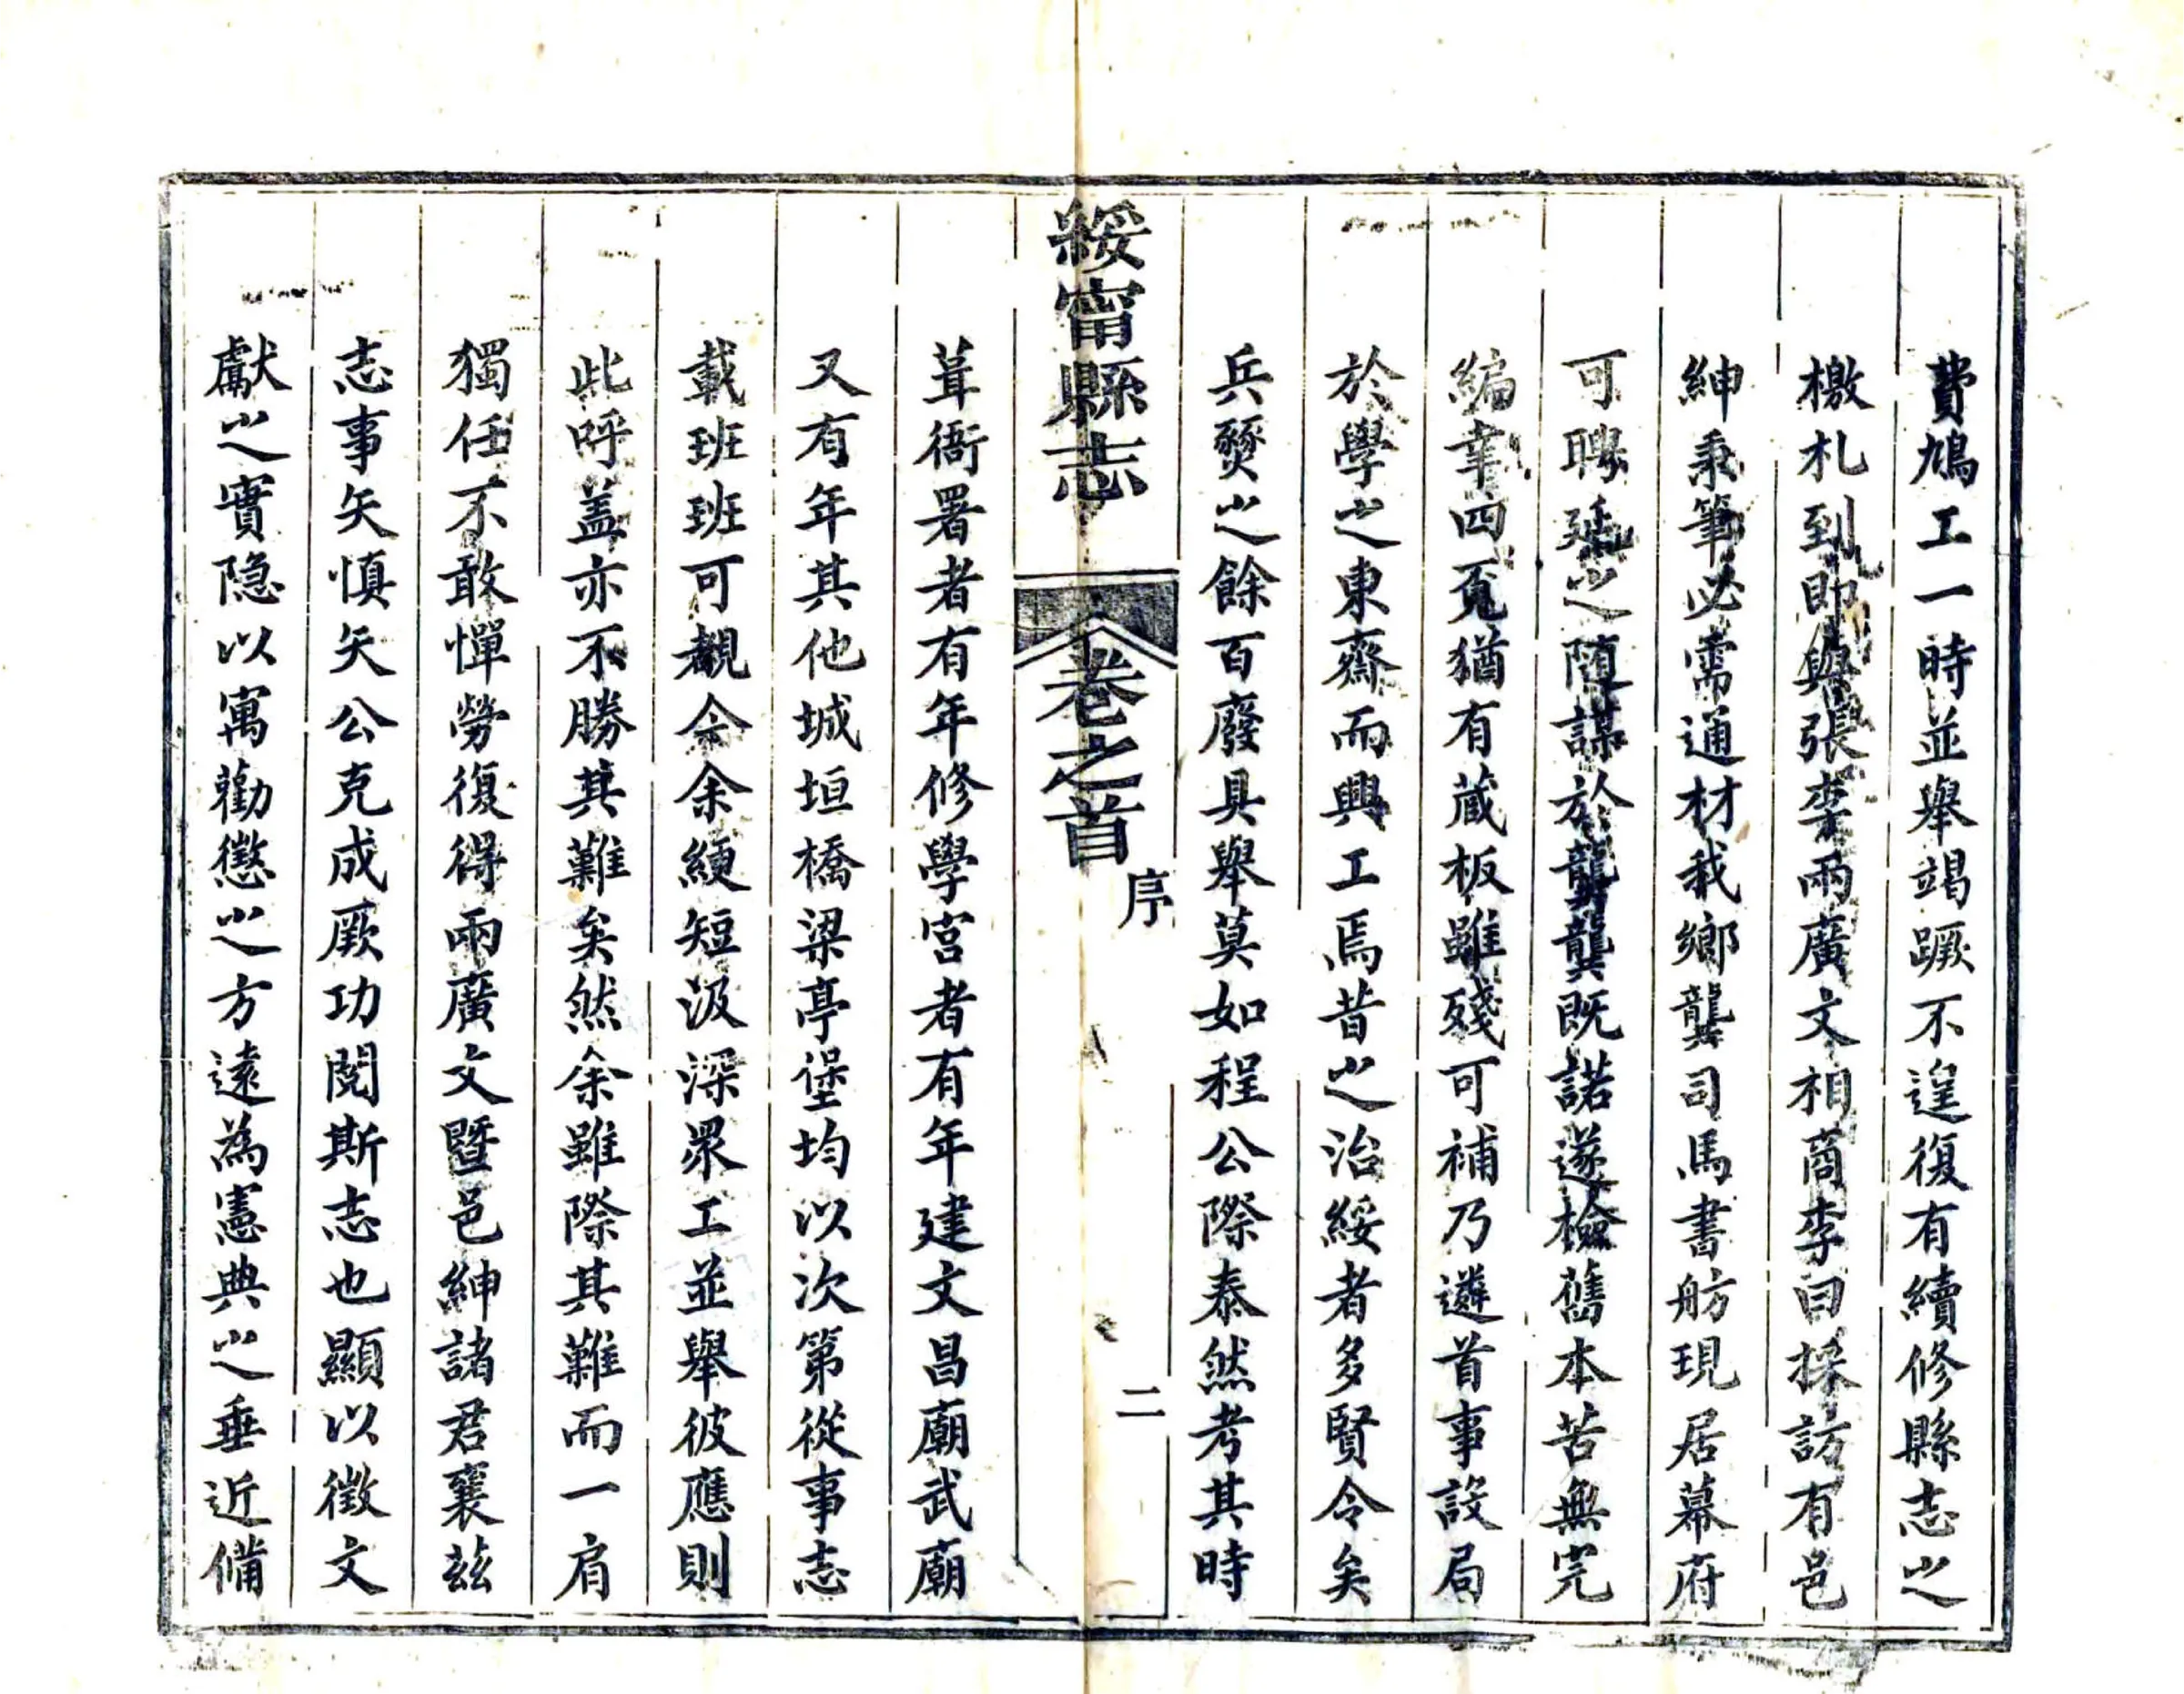 費鳩工一時並舉竭蹶不遑復有續修縣志之
檄札到即與張李兩廣文相商李曰採訪有邑
紳秉筆必需通材我鄉龔司馬書舫現居幕府
可聘延之随謀於龔龔既諾遂檢舊本苦無完
編幸四覓猶有蔵板雖殘可補乃遴首事設局
於學之東齋而興工焉昔之治綏者多賢令矣
兵燹之餘百廢具舉莫如程公際泰然考其時
綏甯縣志 卷之首 序 二
葺衙署者有年修學宮者有年建文昌廟武廟
又有年其他城垣橋梁亭堡均以次第從事志
載班班可覩今余綆短汲深眾工並舉彼應則
此呼盖亦不勝其難矣然余雖際其難而一肩
獨任不敢憚勞復得兩廣文暨邑紳諸君襄兹
志事矢慎矢公克成厥功閱斯志也顯以徵文
獻之實隐以寓勸懲之方遠為憲典之垂近備